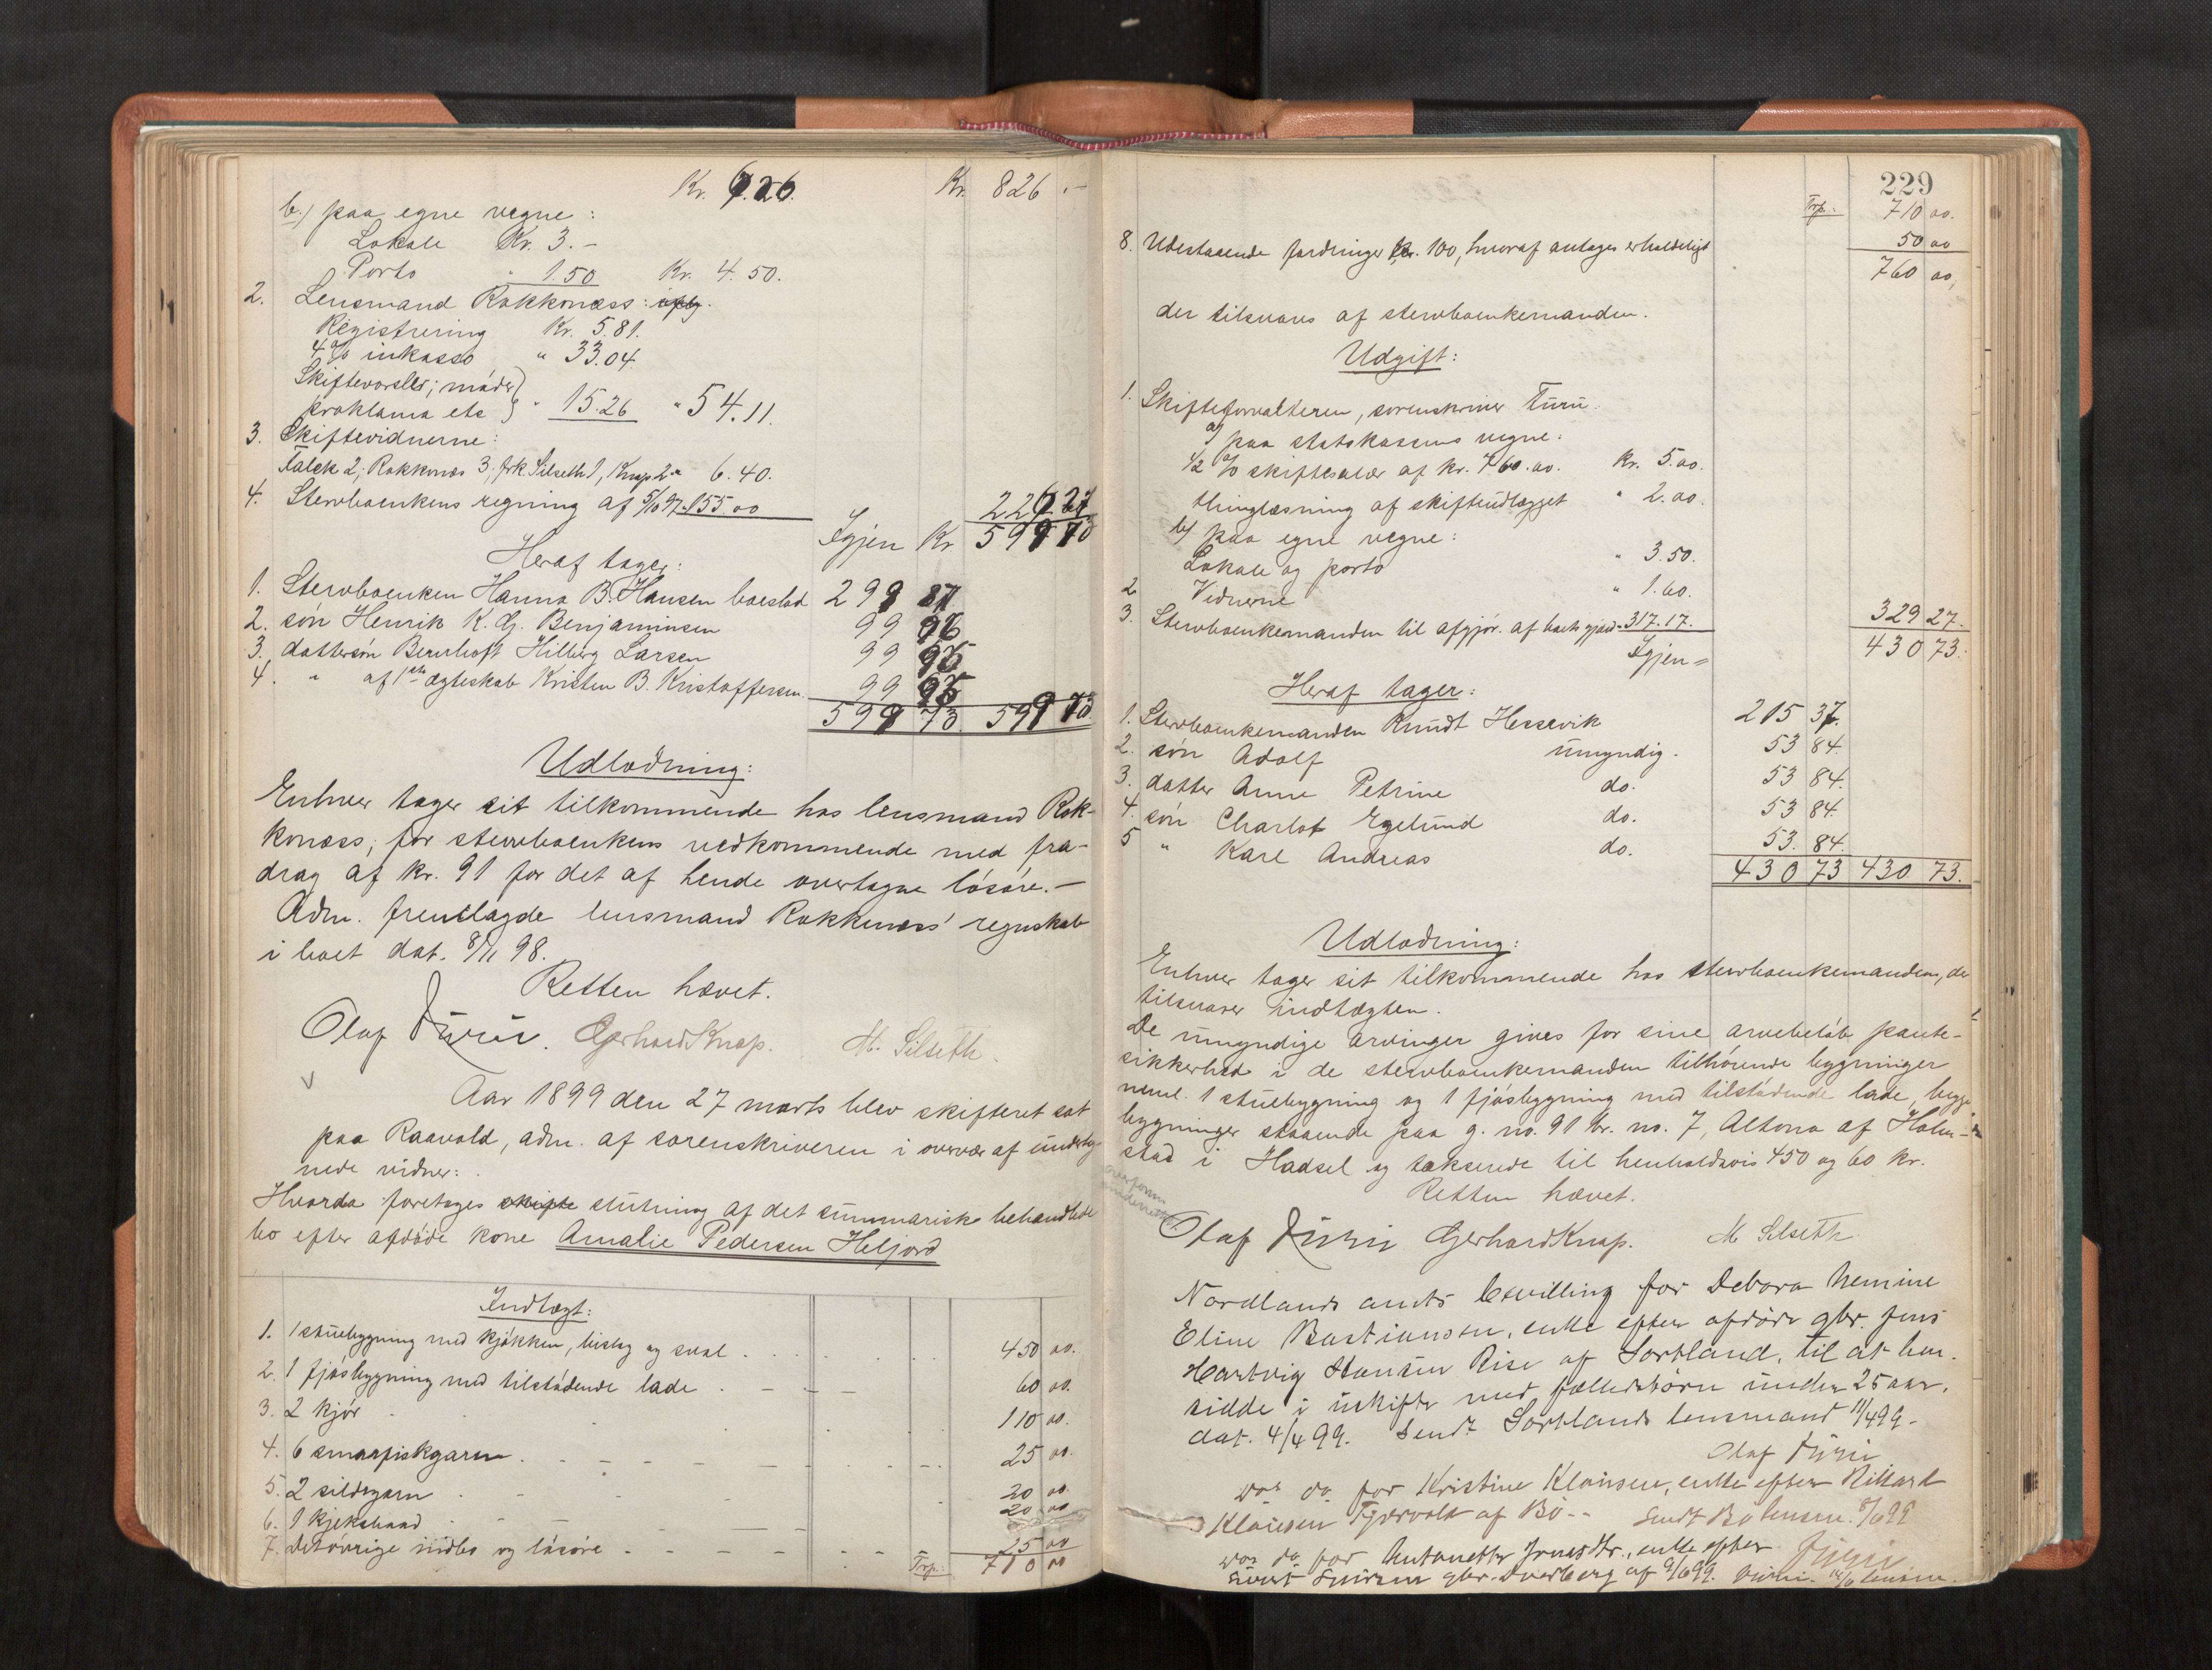 Kr. 7.26. Kr. 826.-
b.) paa egne vegne:
Lokale Kr. 3.-
Porto " 1.50 Kr. 4.50.
2. Lensmand Rokkonæss:
Registrering Kr. 5.81.
4% inkasso " 33.04.
Skiftevarsler; møder
proklama etc " 15.26 " 54.11.
3. Skiftevidnerne:
Falck 2, Rokkonæs 3, frk. Silseth 1, Knap 2 " 6.40.
4. Stervboenkens regning af 5/10 97 " 155.00 227 27
Igjen Kr 598 73
Heraf tager:
1. Stervboenken Hanna B. Hansen boeslod 298 87
2. søn Henrik K. G. Benjaminsen 99 96
3. dattersøn Bernhoft Hilberg Larsen 99 95
4. " af 1ste ægteskab Kristen B. Kristoffersen 99 95
598 73. 598 73
Udlodning:
Enhver tager sit tilkommende hos lensmand Rok-
konæss, for stervboenkens vedkommende med fra-
drag af kr. 91 for det af hende overtagne løsøre.-
Adm. fremlagde lensmand Rokkenæss' regnskab
i boet dat. 8/11 98.
Retten hævet.
Olaf Juriu. Gerhard Knap. M. Silseth.
Aar 1899 den 27 marts blev skifteret sat
paa Raavold, adm. af sorenskriveren i overvær af undteg-
nede vidner:
Hvorda foretoges skifte slutning af det summarisk behandlede
bo efter afdøde kone Amalie Pedersen Heljord
Indtægt:
1. 1 stuebygning med kjøkken, bislag og sval 450 00.
2. 1 fjøsbygning med tilstødende lade 60 00.
3. 2 kjør 110 00.
4. 6 smaafiskgarn 25 00.
5. 2 sildegarn 20 00.
6. 1 kjeksbaad 20 00
7. Detøvrige indbo og løsøre 25 00
Trp.: 710 00
229
Trp.: 710 00.
8. Udestaaende fordringer kr. 100, hvoraf antages erholdeligt 50 00
760 00,
der tilsvares af stervboenkemanden.
Udgift:
1. Skifteforvalteren, sorenskriver Juriu.
a) paa statskassens vegne:
1/2 % skiftesalær af kr. 760.00. Kr. 5.00.
thinglæsning af skifteudlægget " 2.00.
b) paa egne vegne:
Lokale og porto " 3.50.
2 Vidnerne " 1.60.
3. Stervboenkemanden til afgjør. af boets gjæld " 317.17. 329 27.
Igjen = 430 73.
Heraf tager:
1. Stervboenkemanden Knudt Hessevik 215 37.
2. søn Adolf umyndig. 53 84.
3. datter Anne Petrine do. 53 84.
4. søn Charlot Egelund do. 53 84.
5 " Karl Andreas do. 53. 84.
430 73 430 73.
Udlodning:
Enhver tager sit tilkommende hos stervboenkemanden, der
tilsvarer indtægten.
De umyndige arvinger gives for sine arvebeløb pante-
sikkerhed i de stervboenkemanden tilhørende bygninger
neml. 1 stuebygning og 1 fjøsbygning med tilstødende lade, begge
bygninger staaende paa g. no. 91 br. no. 7, Altona af Holm-
stad i Hadsel og takserede til henholdsvis 450 og 60 kr.
Retten hævet.
Olaf Juriu Gerhard Knap. M Silseth
Nordlands amts bevilling for Debora Nemine
Eline Bastiansen, enke efter afdøde gbr. Jens
Hartvig Hansen Rise af Sortland, til at hen-
sidde i uskifte med fællesbørn under 25 aar,
dat. 4/4 99. Sendt Sortlands lensmand 11/4 99.
Olaf Juriu
do for Kristine Klausen, enke efter Rikard
Klausen af Bø -- Sendt Bø lensm. 8/6 99
do for Antonette enke efter
Sivert gbr. Dverberg af 9/6 99.